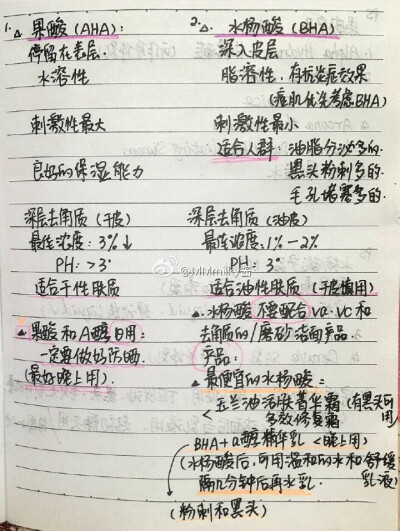 1. △ 果酸(AHA):
停留在表层.
水溶性
刺激性最大
良好的保湿能力
深层去角质(干皮)
最佳浓度: 3%↓
PH: >3°
适合干性肤质
△ 果酸和A醇日用:
一定要做好防晒.
(最好晚上用).
2. △ 水杨酸(BHA)
深入皮层
脂溶性. 有抗炎症效果
(痘肌优先考虑BHA)
刺激性最小
适合人群: 油脂分泌多的.
黑头粉刺多的.
毛孔堵塞多的.
深层去角质(油皮)
最佳浓度: 1%-2%
PH: 3°
适合油性肤质(干皮慎用)
△. 水杨酸不要配合VA. VC和
去角质的/磨砂洁面产品.
产品:
△ 最便宜的水杨酸:
<玉兰油活肤菁华霜(有黑头可用
多效修复霜
BHA+a醇精华乳<晚上用>
(水杨酸后,可用温和的水和舒缓乳液)
隔几分钟后再水乳.
(粉刺和黑头)
@MMmilky酱